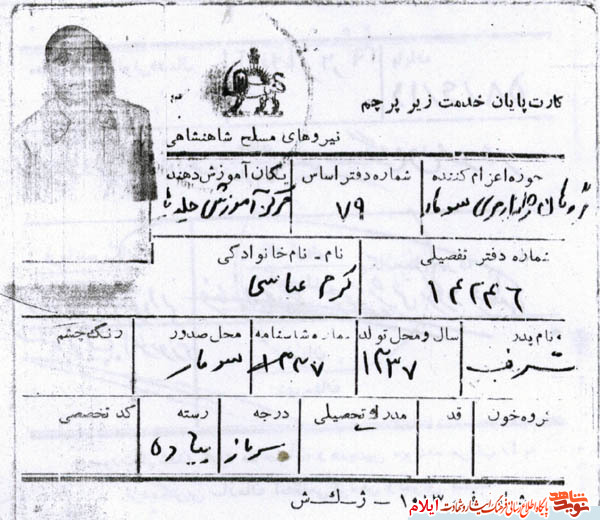 کارت پایان خدمت زیر پرچم
نیروهای مسلح شاهنشاهی
حوزه اعزام کننده شماره دفتر اساس یگان آموزش دهنده
ژاندارمری سومار ۷۹ مرکز آموزشی جلدیا
شماره دفتر تفصیلی نام - نام خانوادگی
۱۴۲۴۶ کرم عباسی
نام پدر سال و محل تولد شماره شناسنامه محل صدور رنگ چشم
شرف ۱۳۳۷ ۱۳۳۷ سومار
گروه خون قد مدرک تحصیلی درجه رسته کد تخصصی
سرباز پیاده
ش
نوید شاهد
پایگاه اطلاع رسانی فرهنگ ایثار و شهادت ایلام